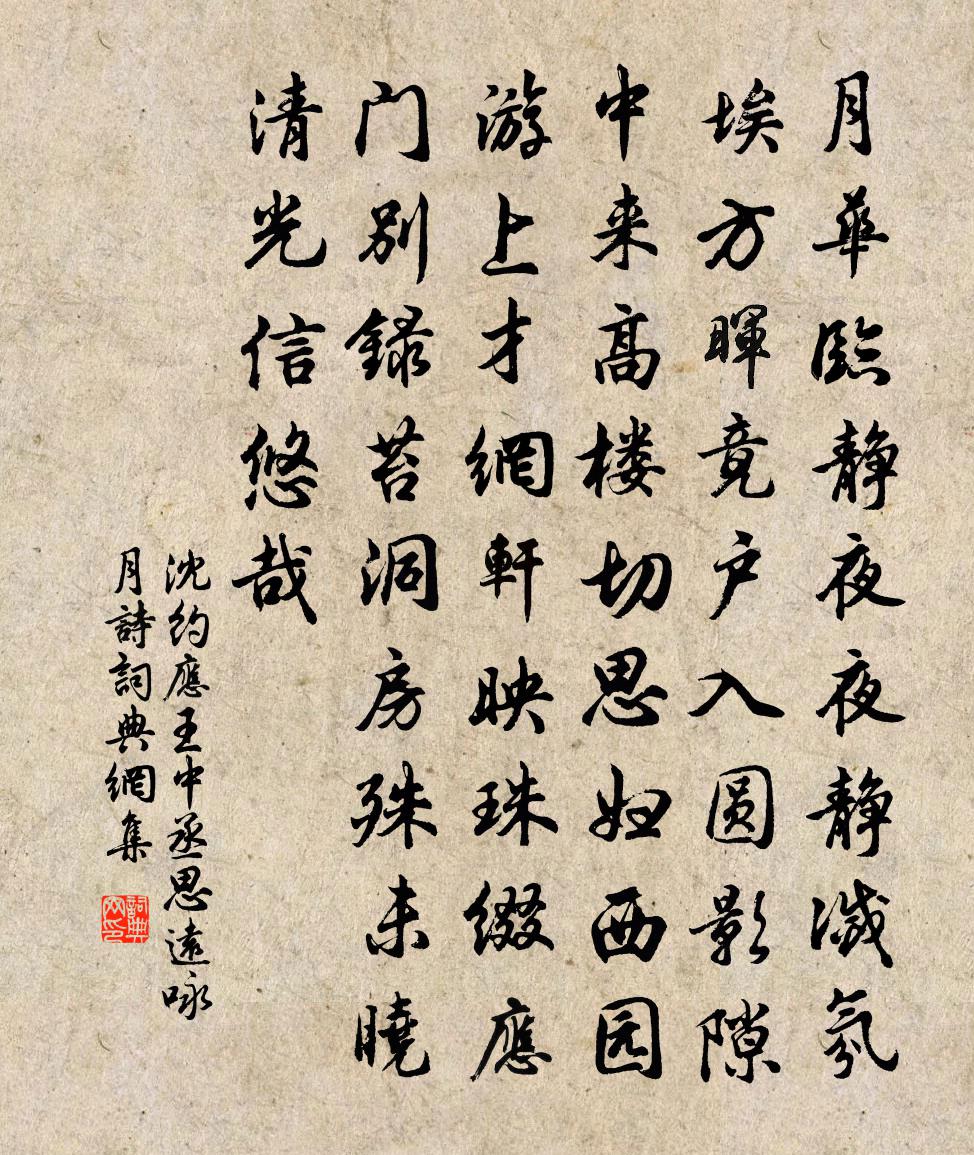 月華臨静夜夜静滅氛
埃方暉竟户入圆影隙
中来高楼切思妇西园
游上才網軒映珠綴應
门别録苔洞房殊未曉
清光信悠哉
沈约應王中丞思遠咏
月詩詞典網集
詞典网印